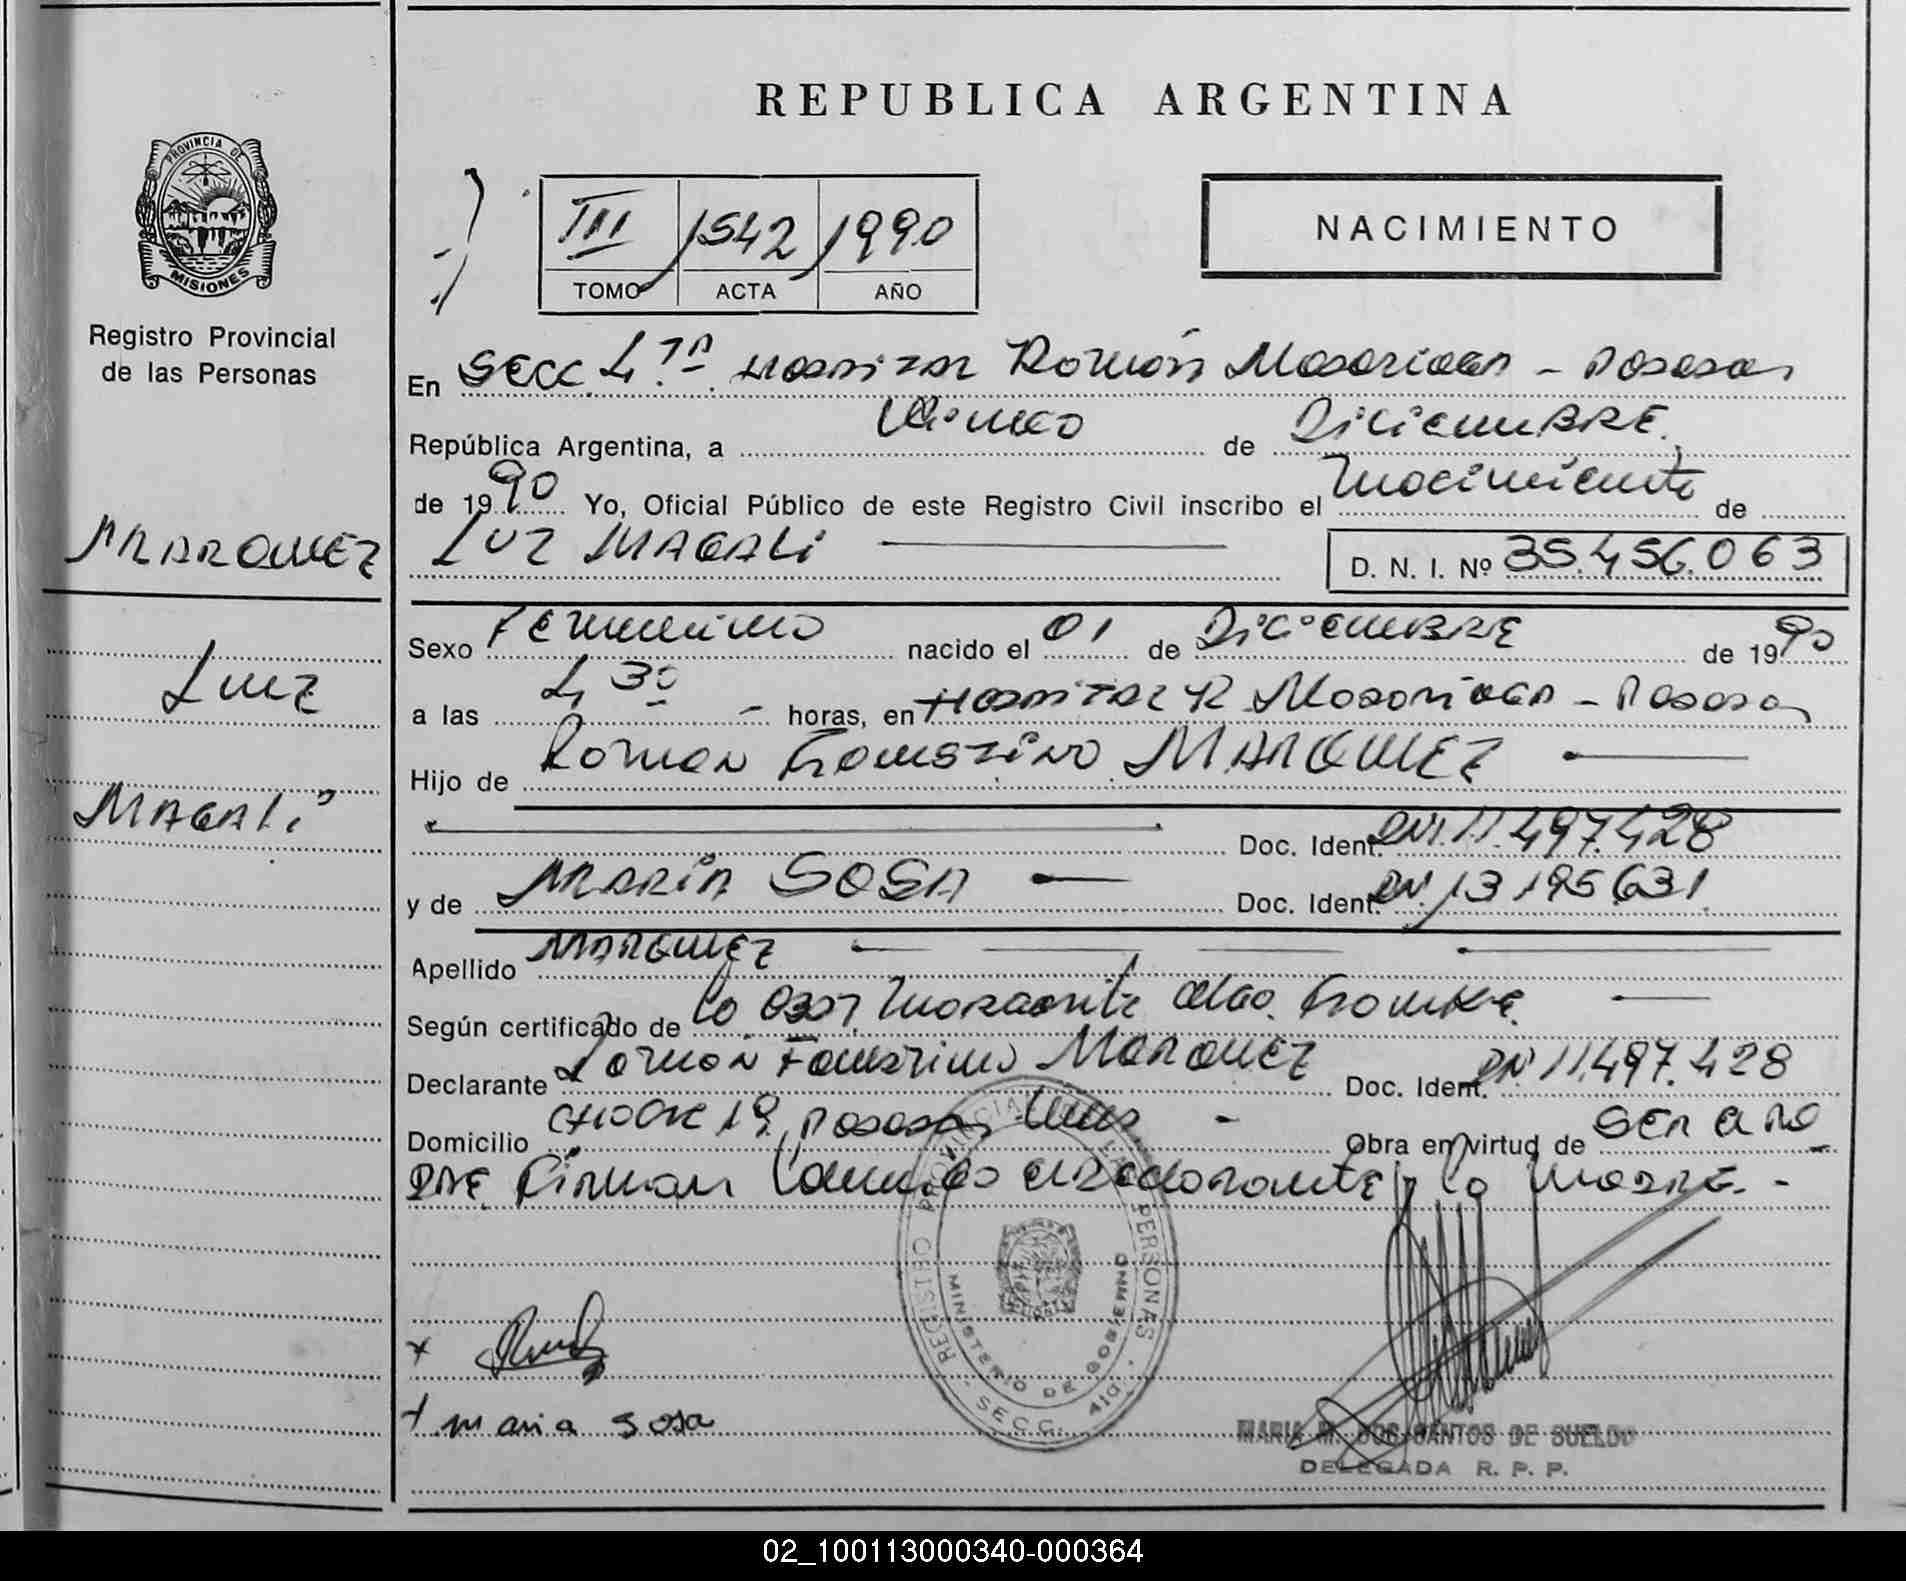 REPUBLICA ARGENTINA
PROVINCIA DE
MISIONES
Registro Provincial
de las Personas
III 1542 1990
TOMO ACTA AÑO
NACIMIENTO
En SECC 4ta. HOSPITAL Ramón Madariaga - Posadas
República Argentina, a cinco de DiciemBRE.
de 1990 Yo, Oficial Público de este Registro Civil inscribo el nacimiento de
LUZ MAGALI D. N. I. Nº 35.456.063
MARQUEZ
Luz
MAGALi
Sexo Femenino nacido el 01 de DiciemBRE de 1990
a las 4,30 - horas, en HOSPITAL R Madariaga - Posadas
Hijo de Roman Faustino MARQUEZ
Doc. Ident. DNI. 11.497.428
y de MARIA SOSA Doc. Ident. DNI. 13 195.631.
Apellido MARQUEZ
Según certificado de la obst. Margarita
Declarante Roman Faustino MARQUEZ Doc. Ident. DNI 11.497.428
Domicilio 19 Posadas Mnes. - Obra en virtud de SER el PA-
DRE Firman conmigo el declarante y la MADRE. -
REGISTRO PROVINCIAL DE LAS PERSONAS
MINISTERIO DE GOBIERNO
SECC. 4ta.
+
+ maria sosa
MARIA M. DOS SANTOS DE SUELDO
DELEGADA R. P. P.
02_100113000340-000364